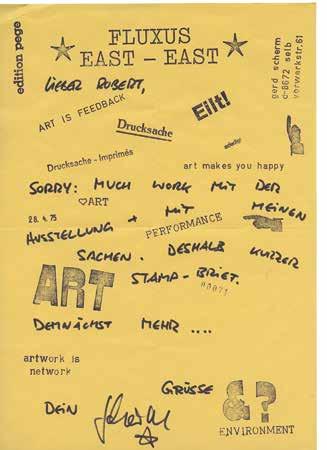 edition pege
FLUXUS
EAST - EAST
gerd scherm
d-8672 selb
vorwerkstr.61
LIEBER ROBERT,
ART IS FEEDBACK
Eilt!
Drucksache
Drucksache - Imprimés
art makes you happy
SORRY: MUCH WORK MIT DER
♡ART
28. 4. 75
AUSSTELLUNG + MIT MEINEN
PERFORMANCE
SACHEN. DESHALB KURZER
ART
STAMP-BRIEF.
00071
DEMNÄCHST MEHR ....
artwork is
network
GRÜSSE
DEIN
& ?
ENVIRONMENT